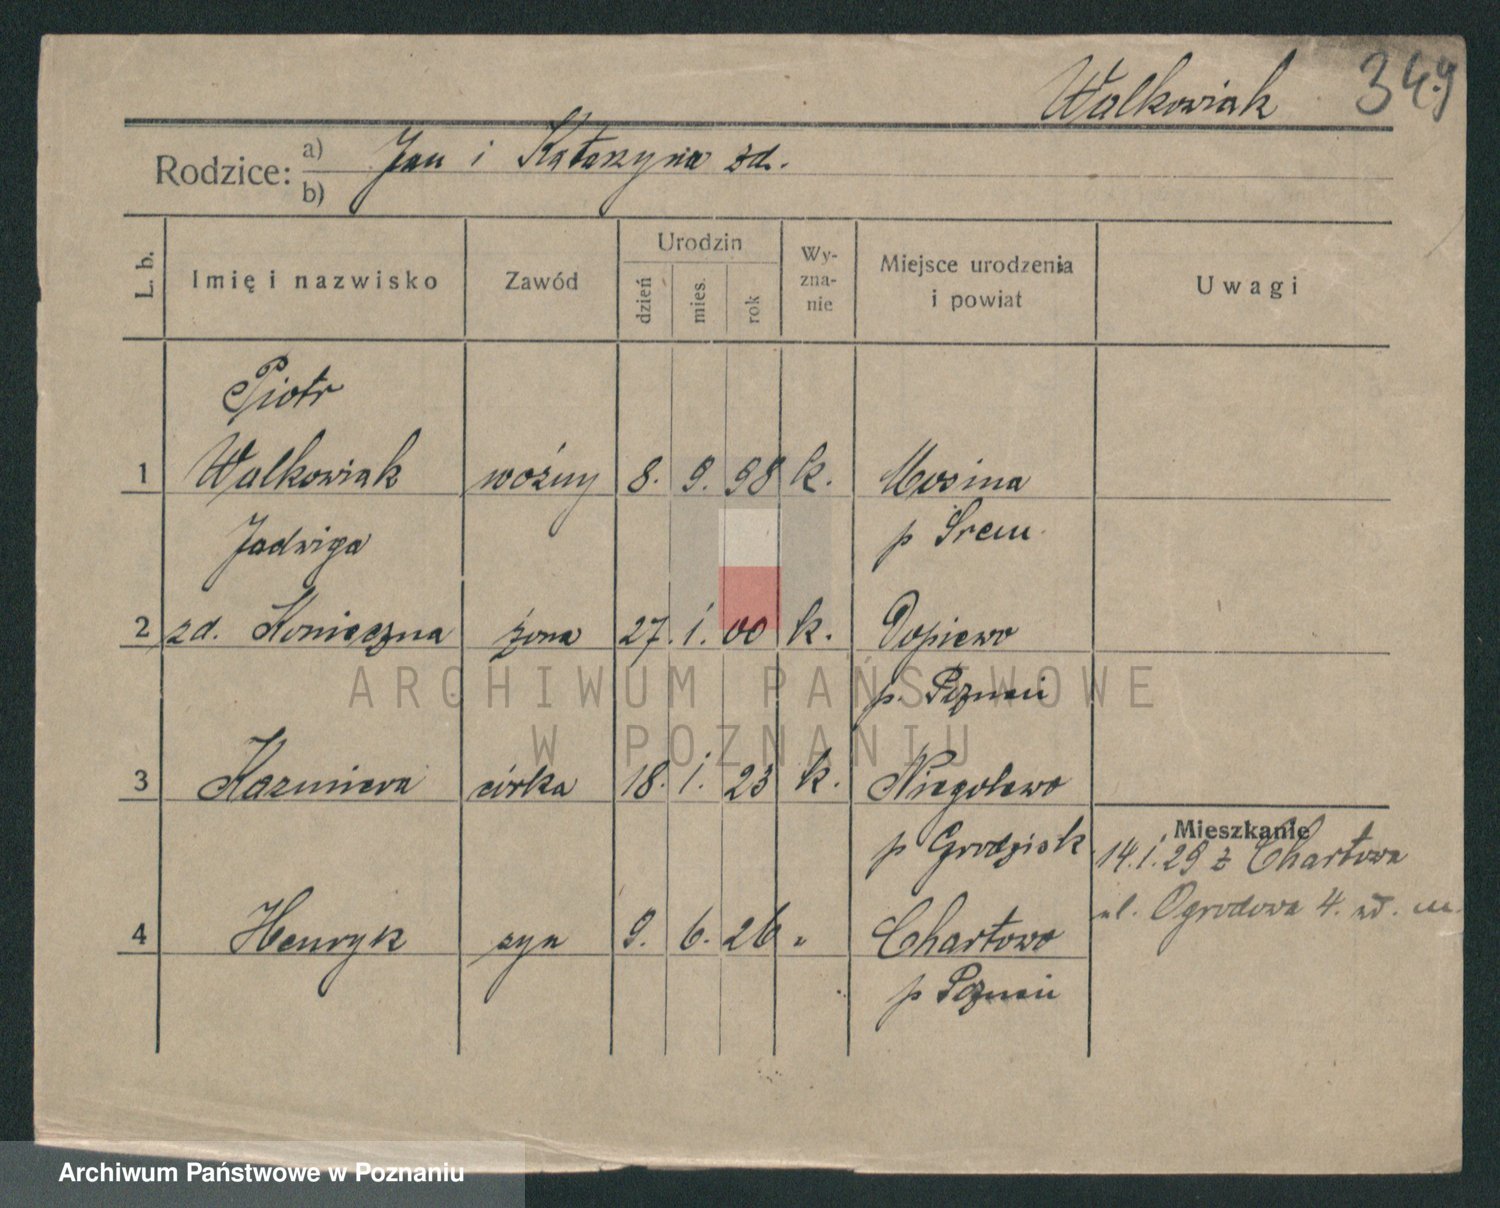 Walkowiak 349
Rodzice: a) Jan i Katarzyna zd.
b)
L. b. Imię i nazwisko Zawód Urodzin dzień mies. rok Wy-zna-nie Miejsce urodzenia i powiat Uwagi
Piotr
1 Walkowiak woźny 8. 9. 98 k. Mosina
Jadwiga p Śrem
2 zd. Konieczna żona 27. 1. 00 k. Dopiewo
p. Poznań
3 Kazmiera córka 18. 1. 23 k. Niegolewo
Mieszkanie
p Grodzisk 14.1.29 z Chartowa
ul. Ogrodowa 4.
4 Henryk syn 9. 6. 26 " Chartowo
p Poznań
ARCHIWUM PAŃSTWOWE
W POZNANIU
Archiwum Państwowe w Poznaniu